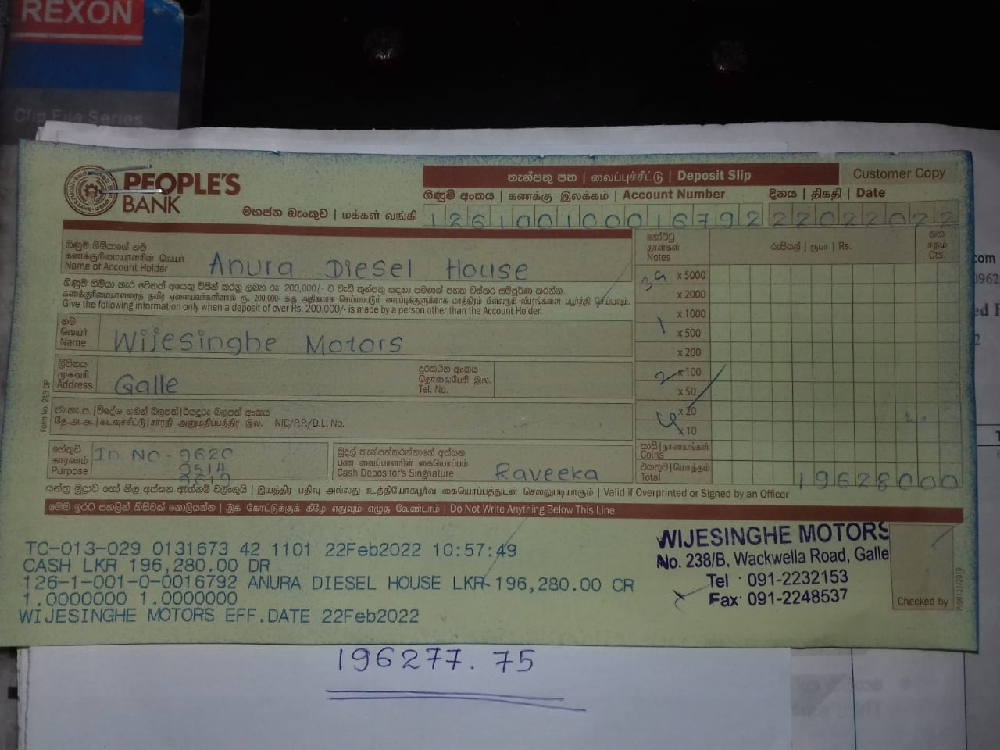 REXON
Clip File Series
PEOPLE'S
BANK
මහජන බැංකුව | மக்கள் வங்கி
තැන්පතු පත | வைப்புச்சீட்டு | Deposit Slip
Customer Copy
ගිණුම් අංකය | கணக்கு இலக்கம் | Account Number
දිනය | திகதி | Date
126100100016792
22022022
ගිණුම් හිමියාගේ නම
கணக்குரிமையாளரின் பெயர்
Name of Account Holder
Anura Diesel House
Give the following information only when a deposit of over Rs. 200,000/- is made by a person other than the Account Holder.
නම
பெயர்
Name
Wijesinghe Motors
ලිපිනය
முகவரி
Address
Galle
දුරකථන අංකය
தொலைபேசி இல.
Tel. No.
NIC/P.P./D.L No.
හේතුව
காரணம்
Purpose
In No - 9620
9514
Cash Depositor's Signature
Raveeka
නෝට්ටු
தாள்கள்
Notes
රුපියල් | ரூபா | Rs.
ශත
சதம்
Cts.
39 x 5000
x 2000
x 1000
1 x 500
x 200
2 x 100
x 50
4 x 20
x 10
Coins
එකතුව | மொத்தம்
Total
19628000
Valid if Overprinted or Signed by an Officer
Do Not Write Anything Below This Line
TC-013-029 0131673 42 1101 22Feb2022 10:57:49
CASH LKR 196,280.00 DR
126-1-001-0-0016792 ANURA DIESEL HOUSE LKR-196,280.00 CR
1.0000000 1.0000000
WIJESINGHE MOTORS EFF.DATE 22Feb2022
WIJESINGHE MOTORS
No. 238/B, Wackwella Road, Galle
Tel : 091-2232153
Fax: 091-2248537
Checked by
196277.75
.com